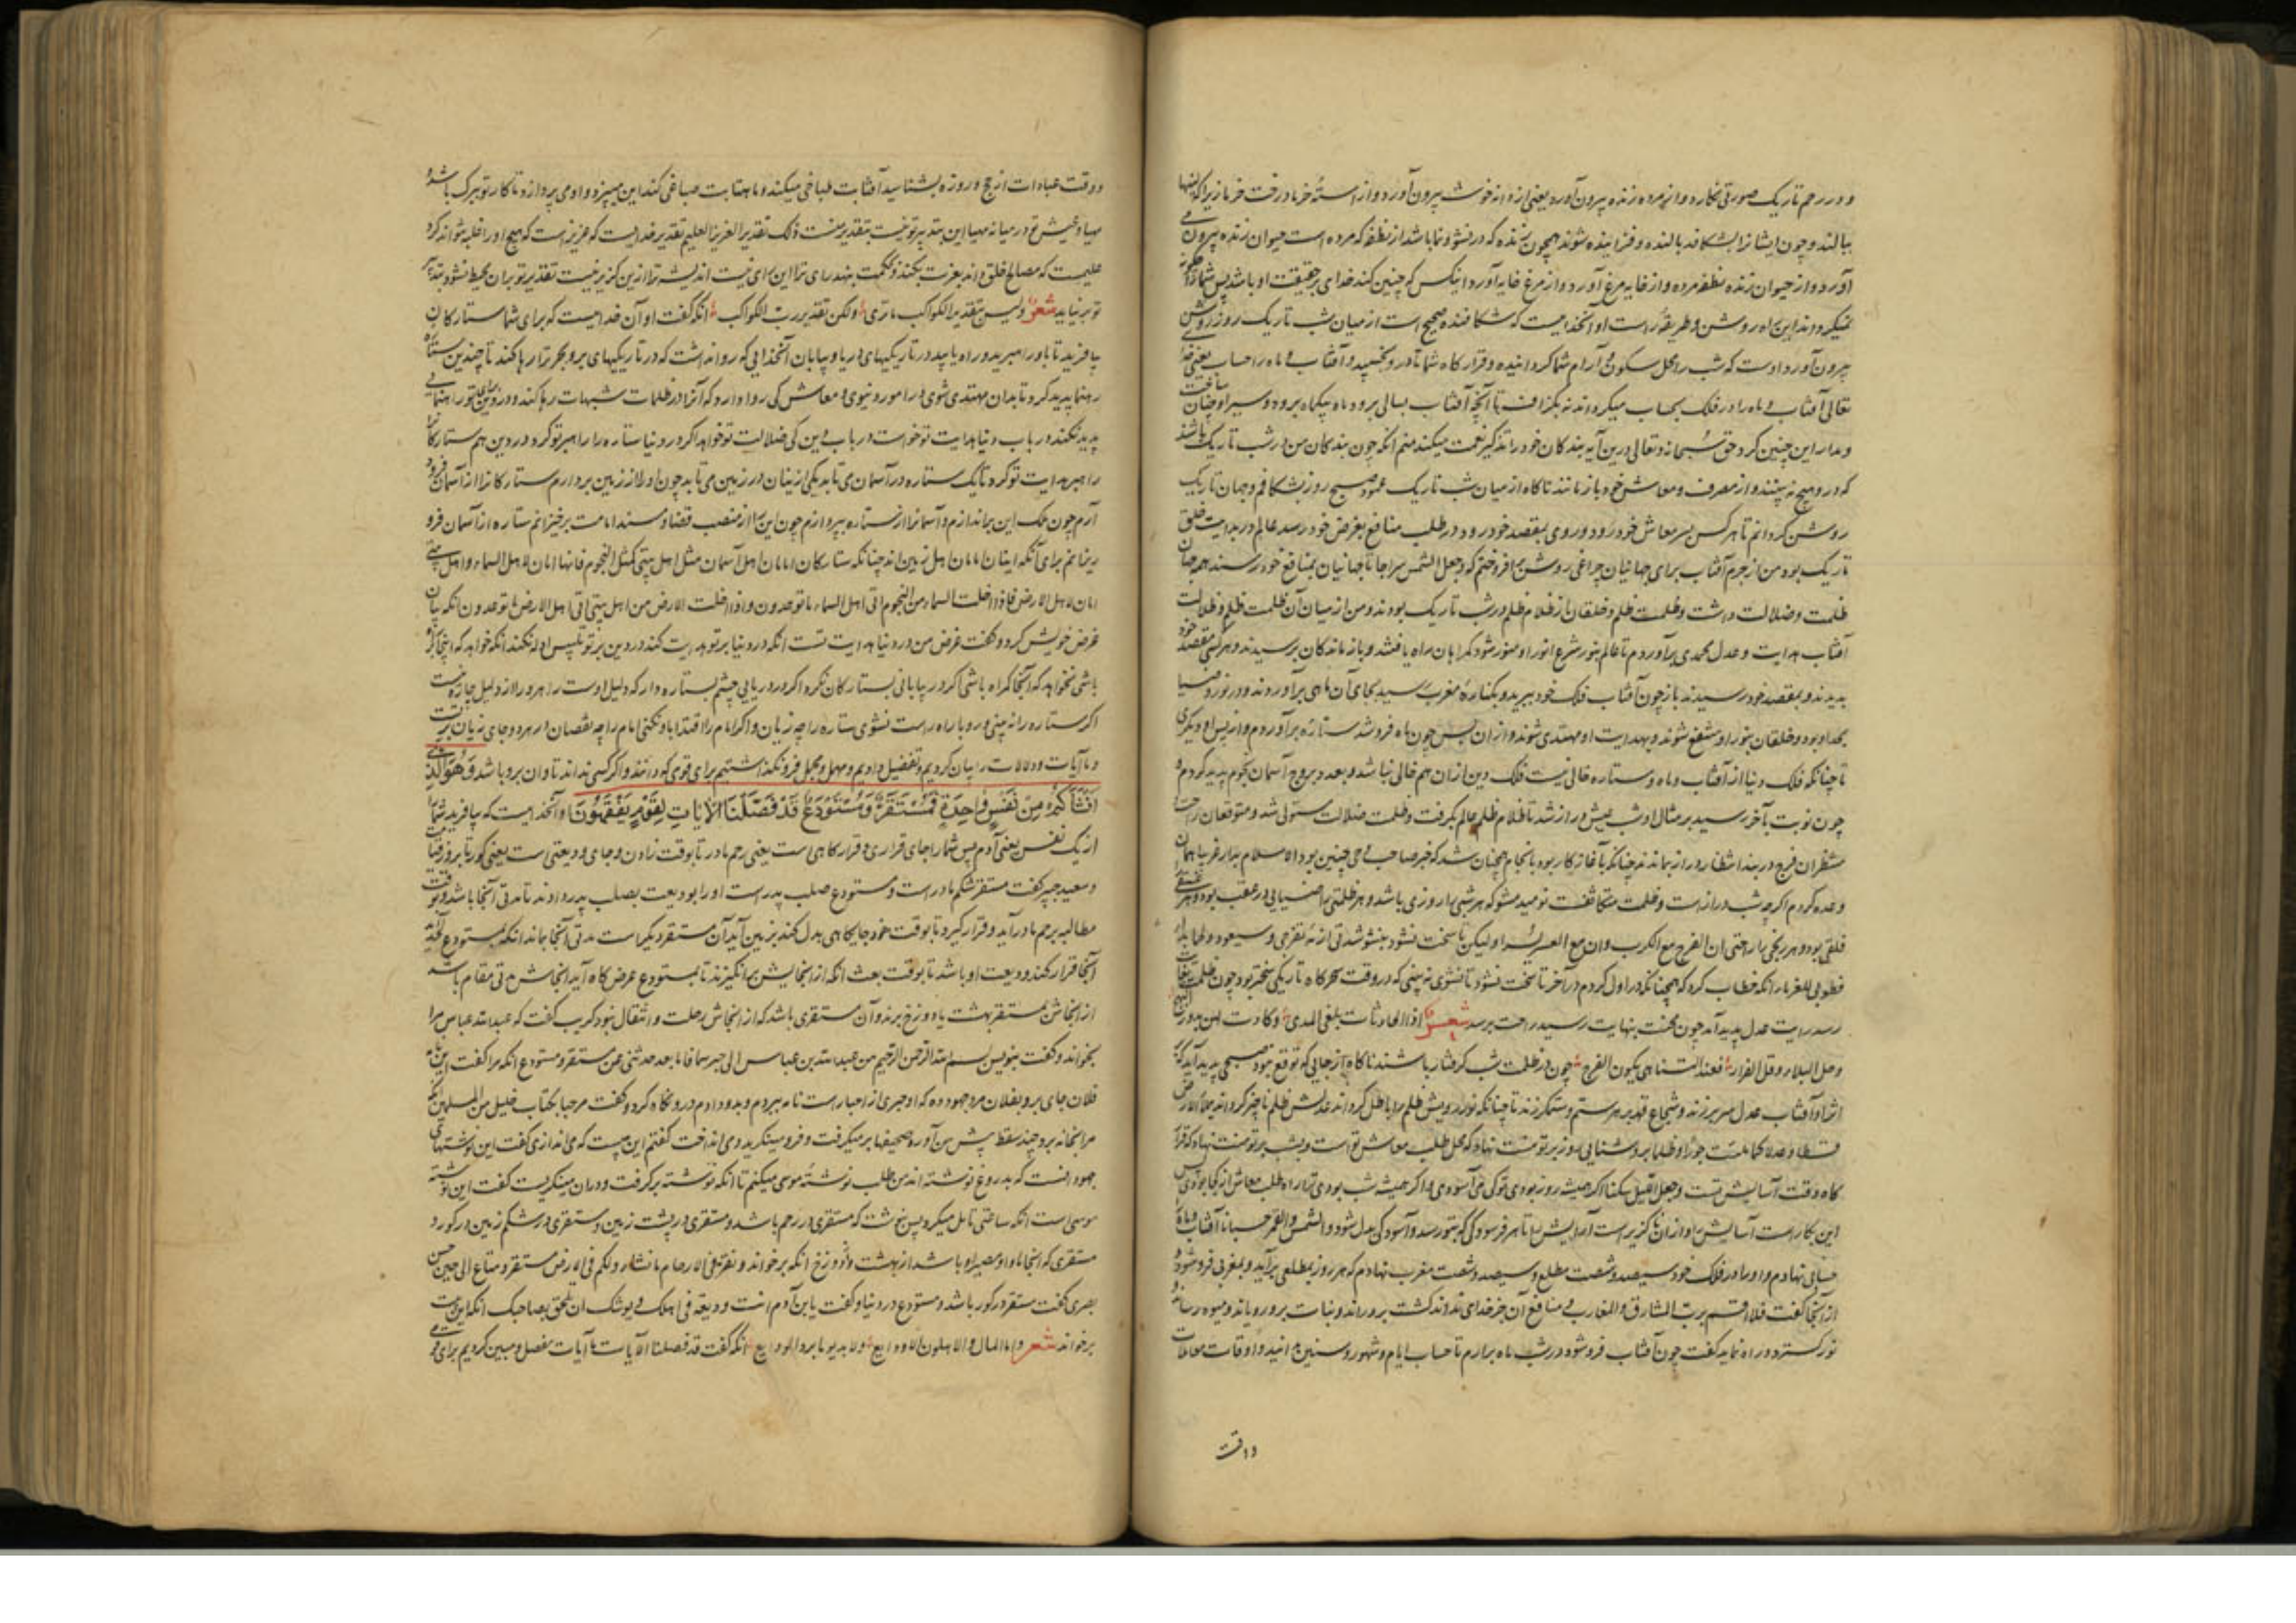 و در رحم تاریک صورتی نگارد و از مرده زنده بیرون آورد یعنی از دانه خوشه بیرون آورد و از استهٔ خرما درخت خرما زیرا که اینها
ببالند و چون ایشانرا بشکافد بالنده و فزاینده شوند همچون زنده که در نشو و نما باشد از نطفه که مرده است حیوان زنده بیرون می
آورد و از حیوان زنده نطفه مرده و از خایه مرغ آورد و از مرغ خایه آورد اینکس که چنین کند خدای بر حقیقت او باشد پس شما را
نمیگرداند ازین راه روشن و طریقهٔ راست او آنخدایست که شکافنده صبح است از میان شب تاریک روز روشن
بیرون آورد اوست که شب را محل سکون و آرام شما گردانیده و قرار کاه شما تا درو بخسپید و آفتاب و ماه را حساب یعنی خدا
تعالی آفتاب و ماه را در فلک بحساب میگرداند نه بگزافت تا آنچه آفتاب بسالی برود ماه بیکماه برود و سیر او چنان ساخت
و مدار این چنین کرد حق سبحانه و تعالی درین آیه بندکان خود را تذکیر نعمت میکند منم انکه چون بندکان من در شب تاریک باشند
که درو هیچ نه بینند و از مصرف و معاش خود باز مانند ناکاه از میان شب تاریک عمود صبح روز بشکافم و جهان تاریک
روشن کردانم تا هر کس بسر معاش خود رود و روی بمقصد خود رود در طلب منافع بغرض خود رسد عالم در بدایت خلق
تاریک بود من از جرم آفتاب برای جهانیان چراغی روشن بر افروختم که و جعل الشمس سراجا تا جهانیان بمنافع خود رسند همچنان
ظلمت و ضلالت داشت و ظلمت ظلم و خلقان از ظلام ظلم در شب تاریک بودند و من از میان آن ظلمت ظلم و ضلالت
آفتاب هدایت و عدل محمدی برآوردم تا عالم بنور شرع انور او منور شود کمراهان راه یافتند و باز ماندکان برسیدند و هر کسی مقصد خود
بدیدند و بمقصد خود رسیدند باز چون آفتاب فلک خود ببرید و بکنارهٔ مغرب رسید بجای آن ماهی برآوردند و در نور و ضیا
بحد او بود و خلقان بنور او منتفع شوند و بهدایت او مهتدی شوند و از ان پس چون ماه فرو شد ستاره برآوردم و از پس او دیگری
تا چنانکه فلک دنیا از آفتاب و ماه و ستاره خالی نیست فلک دین از ان هم خالی نباشد و بعد بروج آسمان نجوم پدید کردم و
چون نوبت بآخر رسید بر مثال او شب عیش دراز شد تا ظلام ظلم عالم بگرفت و ظلمت ضلالت مستولی شد و متوقعان راحت
منتظران فرج در بند انتظار دراز بماندند چنانکه بآغاز کار بود بانجام همچنان شد که خبر صاحب وحی چنین بود الاسلام بدا غریبا همان
وعده کردم اگر چه شب دراز است و ظلمت متکاثف نومید مشو که هر شبی را روزی باشد و هر ظلمتی را ضیایی در عقب بود و هر
قلقی بود و هر رنجی را راحتی ان الفرج مع الکرب و ان مع العسر یسرا و لیکن تا سخت نشود
فطوبی للغربا انکه خطاب کرد که همچنانکه در اول کردم در آخر تا سخت نشود تا نشوی نه بینی که در وقت سحرکاه تاریکی سختر بود چون ظلمت
رسد رایت عدل پدید آمد چون محنت بنهایت رسید راحت برسد شعر اذا الحادثات بلغن المدی و کادت لهن
و حل البلاء و قل الغرار فعند التناهی یکون الفرج چون در ظلمت شب کرفتار باشند ناکاه از جایی که توقع نبود صبحی پدید آید
اثر او آفتاب عدل سر بر زند و شجاع قهر بر هر ستم و ستمکر زند تا چنانکه
قسطا و عدلا کما ملئت جورا و ظلما بروشنایی روز بر تو منت نهاد که محل طلب معاش تو است و بشب بر تو منت نهاد که قرار
کاه و قت آسایش تست و جعل اللیل سکنا اگر همیشه روز بودی تو کی می آسودی و اگر همیشه شب بودی ترا راه طلب معاش از کجا بودی پس
این بکار است آسایش را و از ان ناگزیر است آرایش را تا هر فرسودکی که بتو رسد و آسودکی بدل شود و الشمس و القمر حسبانا آفتاب و ماه را
حسابی نهادم و او را در فلک خود سیصد و شصت مطلع و سیصد و شصت مغرب نهادم که هر روز بمطلعی برآید و بمغربی فرو شود و
از آنجا گفت فلا اقسم برب المشارق و المغارب و منافع آن جز خدای نداند کشت بروراند و نبات برویاند و میوه رساند
نور گسترد و راه نماید گفت چون آفتاب فرو شود در شب ماه برآرم تا حساب ایام و شهور و سنین دانید و اوقات معاملات
و اوقت
و وقت عبادات از حج و روزه بشناسید آفتاب طباخی میکند و ماهتاب صباغی کند این میپزد و او می پردازد تا کار تو ببرگ باشد
مهیا و عیش تو در میانه مهیا این بتدبیر تو نیست بتقدیر منست ذلک تقدیر العزیز العلیم تقدیر خدایست که عزیز است که هیچ او را غلبه نتواند کرد
علیمست که مصالح خلق داند بعزت بکند و بحکمت بنهد رای ترا این رای نیست اندیشه ترا ازین گزیر نیست تقدیر تو بران محیط نشود
تو بر نیاید شعر و لیس بتقدیر الکواکب ما تری و لکن تقدیر رب الکواکب انکه گفت او آن خدایست که برای شما ستارکان
بیافرید تا باو راه برید و راه یابید در تاریکیهای دریا و بیابان آنخدایی که روا نداشت که در تاریکیهای بر و بحر ترا رها کند تا چندین ستاره
رهنما پدید کرد تا بدان مهتدی شوی در امور دنیوی و معاش کی روا دارد که ترا در ظلمات شبهات رها کند و در دین برای تو راهنمایی
پدید نکند در باب دنیا هدایت تو خواست در باب دین کی ضلالت تو خواهد اگر در دنیا ستاره را راهبر تو کرد در دین هم ستارکان
راهبر هدایت تو کرد تا یک ستاره در آسمان می تابد یکی از اینان در زمین می تابد چون او را از زمین بردارم ستارکانرا از آسمان فرود
آرم چون حک این براندازم و آسمانرا از ستاره بپردازم چون این را از منصب قضا و مسند امامت برخیزانم ستاره از آسمان فرو
ریزانم برای آنکه اینان امامان اهل زمین اند چنانکه ستارکان امامان اهل آسمان مثل اهل بیتی کمثل النجوم فانها امان لاهل السماء و اهل بیتی
امان لاهل الارض فاذا خلت السماء من النجوم اتی اهل السماء ما توعدون و اذا خلت الارض من اهل بیتی اتی اهل الارض ما توعدون انکه بیان
غرض خویش کرد و گفت غرض من در دنیا هدایت تست انکه در دنیا بر تو هدایت کند در دین بر تو تلبیس ادله نکند انکه خواهد که اینجا بر راه
باشی نخواهد که آنجا کمراه باشی اگر در بیابانی بستارکان نگر و اگر در دریایی چشم بستاره دار که دلیل اوست راهرو را از دلیل چاره نیست
اگر ستاره را نه بینی و رو با راه راست نشوی ستاره را چه زیان و اگر امام را اقتدا باو نکنی امام را چه نقصان از هر دو جای زیان بر تست
و ما آیات و دلالات را بیان کردیم و تفضیل دادیم و مهمل و مجمل فرو نگذاشتیم برای قومی که دانند و اگر کسی نداند تاوان برو باشد وَهُوَ الَّذِي
أَنْشَأَكُمْ مِنْ نَفْسٍ وَاحِدَةٍ فَمُسْتَقَرٌّ وَمُسْتَوْدَعٌ قَدْ فَصَّلْنَا الْآيَاتِ لِقَوْمٍ يَفْقَهُونَ و آنخدایست که بیافرید شما
از یک نفس یعنی آدم پس شما را جای قراری و قرارکاهی است یعنی رحم مادر تا بوقت زادن و جای ودیعتی است یعنی کور تا بروز قیامت
و سعید جبیر گفت مستقر شکم مادر است و مستودع صلب پدر است او را بودیعت بصلب پدر دادند تا مدتی آنجا باشد و بوقت
مطالبه برحم مادر آید و قرار گیرد تا بوقت خود جایکاهی بدل کند بزمین آید آن مستقر دیگر است مدتی آنجا بماند انکه بمستودع
آنجا قرار کند و ودیعت او باشد تا بوقت بعث انکه از انجایش برانگیزند تا بمستودع عرض کاه آید انجاش مدتی مقام باشد
از انجاش مستقر بهشت یا دوزخ برند و آن مستقری باشد که از انجاش رحلت و انتقال نبود کریب گفت که عبدالله عباس مرا
بخواند و گفت بنویس بسم الله الرحمن الرحیم من عبدالله بن عباس الی حبر سما فاما بعد حدثنی عن مستقر و مستودع انکه مرا گفت این نامه
فلان جای بر و بفلان مرد جهود ده که او حبری از احبار است نامه ببردم و بدو دادم درو نگاه کرد و گفت مرحبا بکتاب خلیل من المسلمین انکه
مرا بخانه برد و چند سقط پیش من آورد صحیفها بر میگرفت و فرو مینگرید و می انداخت گفتم این چیست که می اندازی گفت این نوشتهای
جهودانست که بدروغ نوشته اند من طلب نوشتهٔ موسی میکنم تا انکه نوشته برگرفت و دران مینگریست گفت این نوشته
موسی است انکه ساعتی تامل میکرد پس نوشت که مستقری در رحم باشد و مستقری در پشت زمین و مستقری در شکم زمین در کور و
مستقری که انجا ماوا و مصیر او باشد از بهشت و دوزخ انکه برخواند و نقر فی الارحام ما نشاء و لکم فی الارض مستقر و متاع الی حین حسن
بصری گفت مستقر در کور باشد و مستودع در دنیا و گفت یا ابن آدم انت ودیعة فی اهلک و یوشک ان تلحق بصاحبک انکه این بیت
برخواند شعر و ما المال و الاهلون الا ودایع و لا بد یوما ان ترد الودایع انکه گفت قد فصلنا الآیات ما آیات مفصل و مبین کردیم برای قومی